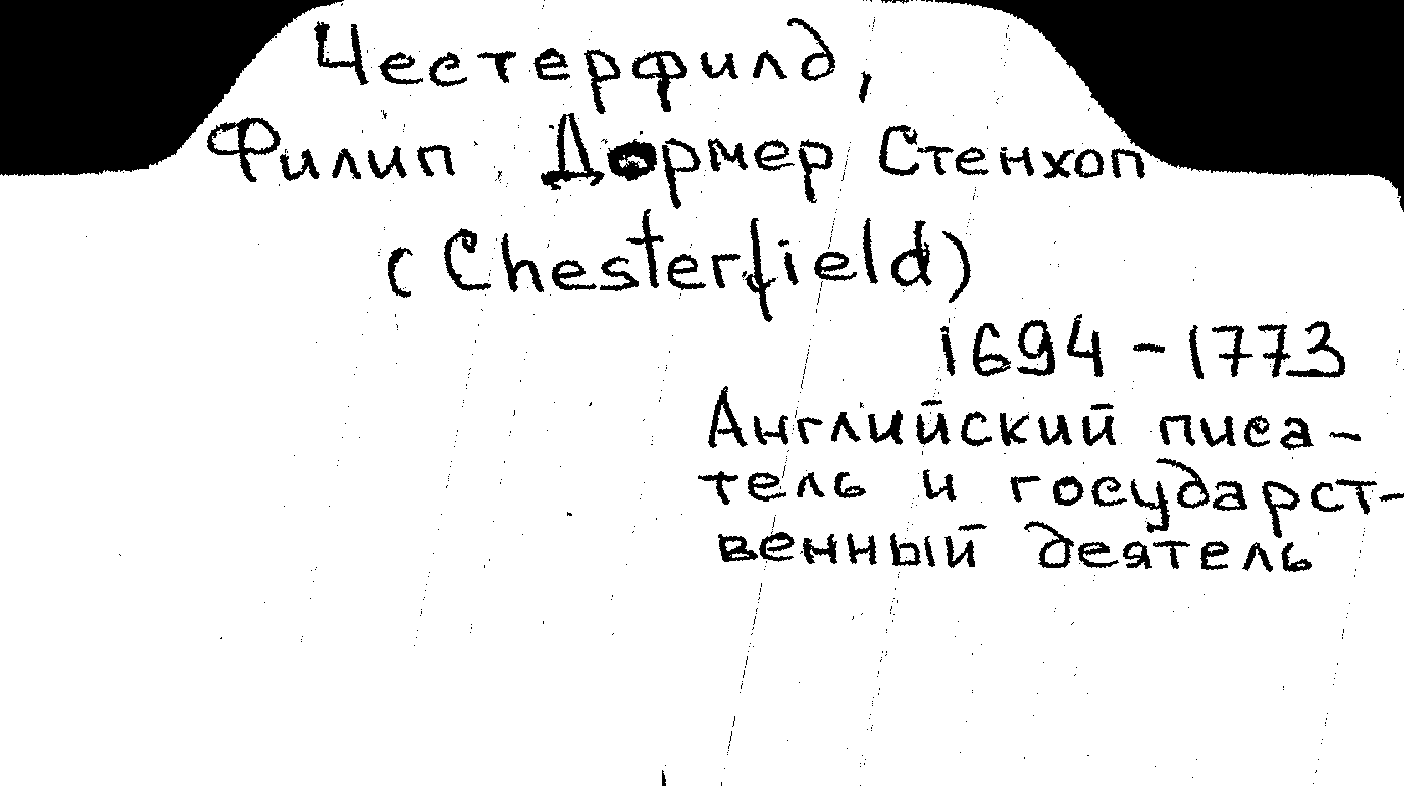 Честерфилд,
Филип Дормер Стенхоп
(Chesterfield)
1694 – 1773
Английский писа-
тель и государст-
венный деятель